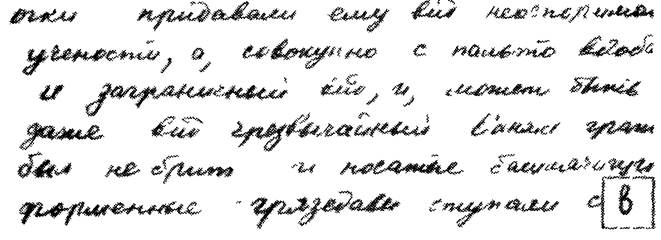 очки придавали ему вид неоспоримой
учености, а, совокупно с пальто вооб
и заграничный вид, и, может быть
даже вид чрезвычайный Ваняк граж
был небрит и носатые
форменные грязедавы ступали с в